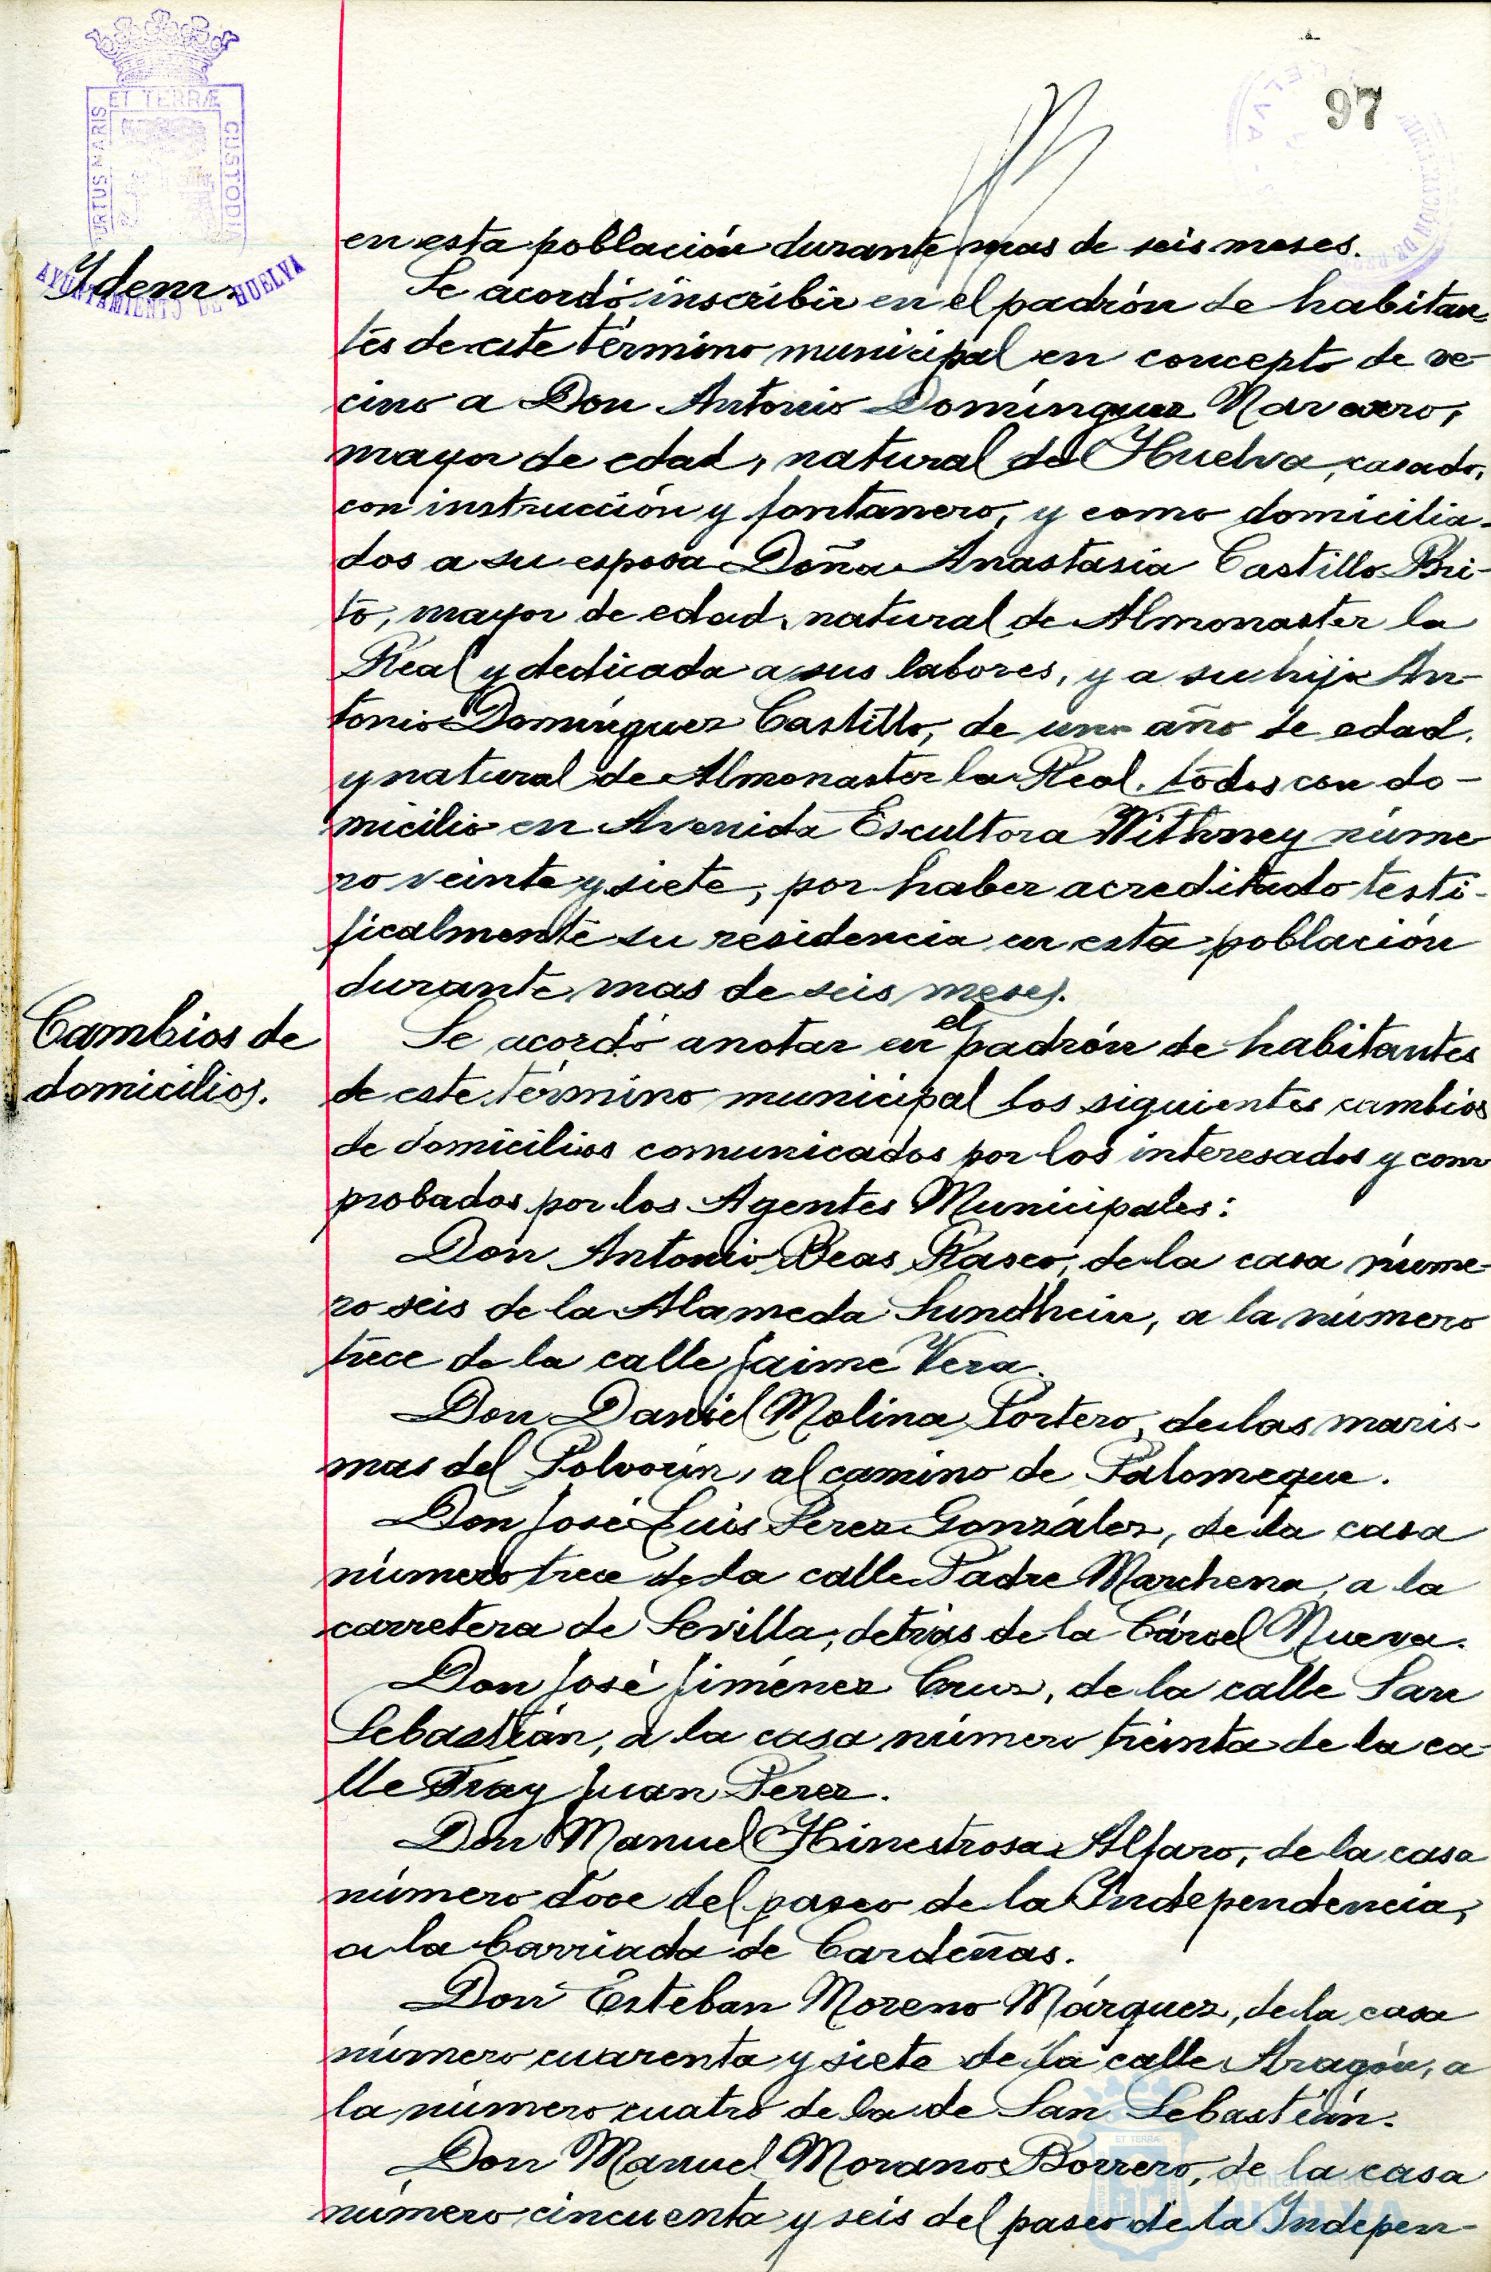 97
ET TERRÆ
CUSTODIA
AYUNTAMIENTO DE HUELVA
Ydem.
en esta población durante mas de seis meses.
Se acordó inscribir en el padrón de habitan-
tes de este término municipal en concepto de ve-
cino a Don Antonio Domínguez Navarro,
mayor de edad, natural de Huelva, casado,
con instrucción y fontanero, y como domicilia-
dos a su esposa Doña Anastasia Castillo Bri-
to, mayor de edad, natural de Almonaster la
Real y dedicada a sus labores, y a su hijo An-
tonio Domínguez Castillo, de un año de edad,
y natural de Almonaster la Real. todos con do-
micilio en Avenida Escultora Withney núme
ro veinte y siete, por haber acreditado testi-
ficalmente su residencia en esta población
durante mas de seis meses.
Cambios de
domicilios.
Se acordó anotar en el padrón de habitantes
de este término municipal los siguientes cambios
de domicilios comunicados por los interesados y com
probados por los Agentes Municipales:
Don Antonio Beas Rasco, de la casa núme-
ro seis de la Alameda Sundhein, a la número
trece de la calle Jaime Vera.
Don Daniel Molina Portero, de las maris-
mas del Polvorín, al camino de Palomeque.
Don José Luis Perez González, de la casa
número trece de la calle Padre Marchena, a la
carretera de Sevilla, detrás de la Cárcel Nueva.
Don José Jiménez Cruz, de la calle San
Sebastián, a la casa número treinta de la ca-
lle Fray Juan Perez.
Don Manuel Hinestrosa Alfaro, de la casa
número doce del paseo de la Independencia,
a la barriada de Cardeñas.
Don Esteban Moreno Márquez, de la casa
número cuarenta y siete de la calle Aragón, a
la número cuatro de la de San Sebastián.
Don Manuel Morano Borrero, de la casa
número cincuenta y seis del paseo de la Indepen-
Ayuntamiento de
HUELVA